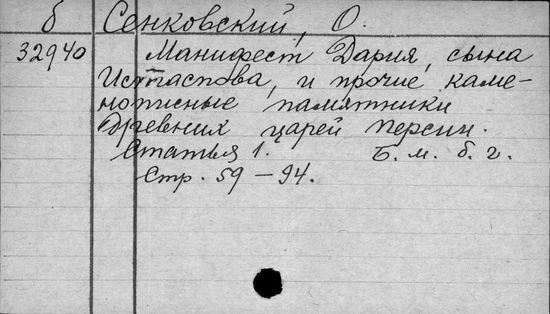 б Сенковский, О.
32940 Манифест Дария, сына
Истаспова, и прочие каме-
нописные памятники
древних царей Персии.
Статья 1. Б. м. б. г.
Стр. 59 – 94.